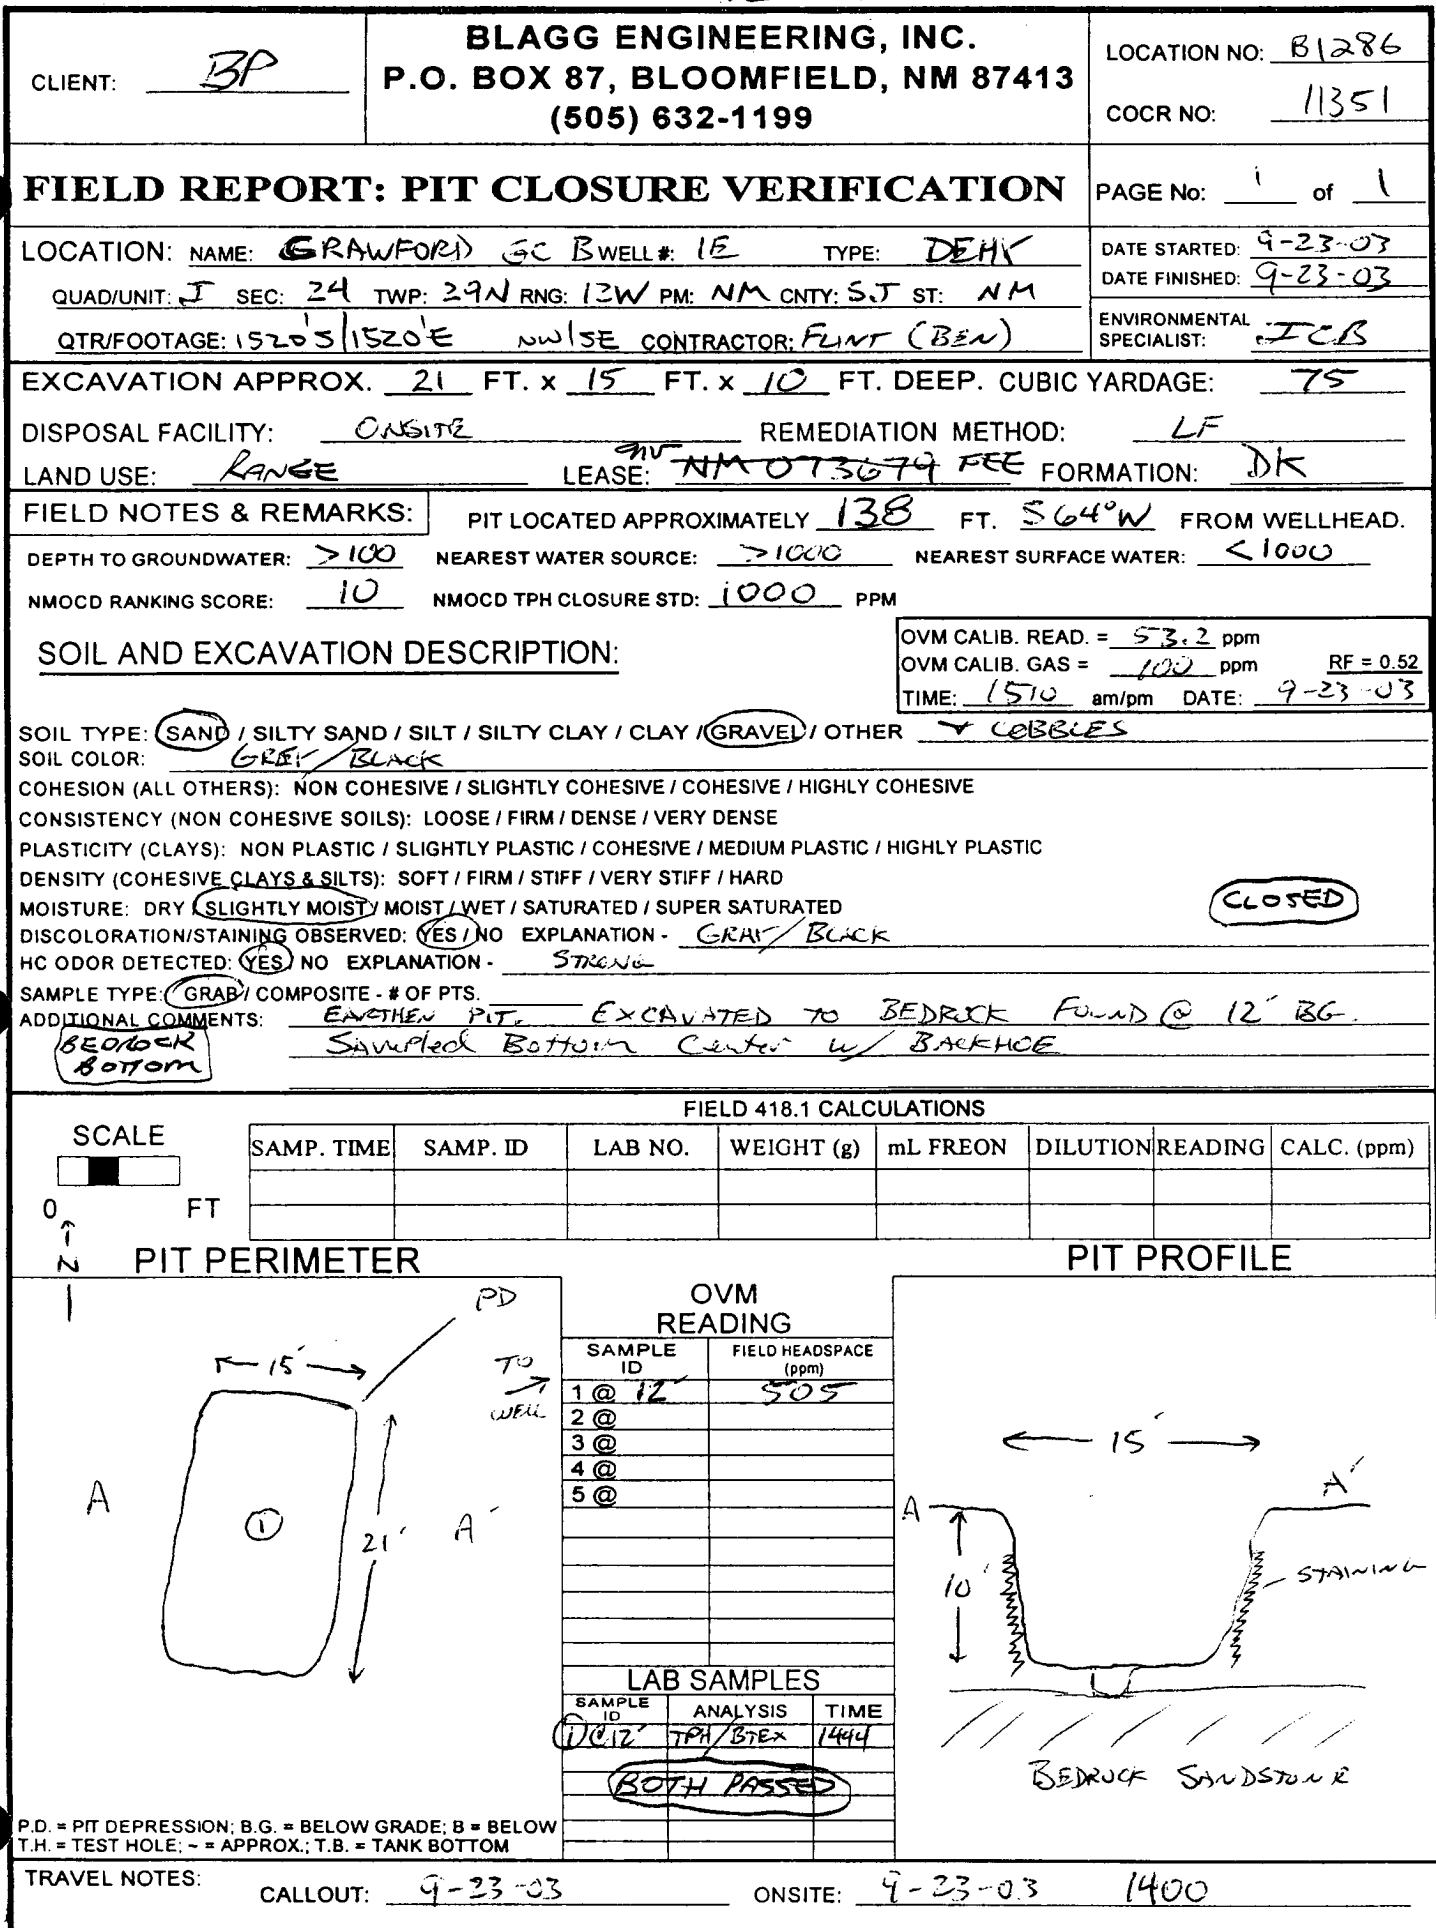 CLIENT: BP
BLAGG ENGINEERING, INC.
P.O. BOX 87, BLOOMFIELD, NM 87413
(505) 632-1199
LOCATION NO: B1286
COCR NO: 11351
FIELD REPORT: PIT CLOSURE VERIFICATION
PAGE No: 1 of 1
LOCATION: NAME: CRAWFORD GC B WELL #: 1E TYPE: DEHY
QUAD/UNIT: J SEC: 24 TWP: 29N RNG: 12W PM: NM CNTY: SJ ST: NM
QTR/FOOTAGE: 1520'S/1520'E NW/SE CONTRACTOR: FLINT (BEN)
DATE STARTED: 9-23-03
DATE FINISHED: 9-23-03
ENVIRONMENTAL
SPECIALIST: JCB
EXCAVATION APPROX. 21 FT. x 15 FT. x 10 FT. DEEP. CUBIC YARDAGE: 75
DISPOSAL FACILITY: ONSITE REMEDIATION METHOD: LF
LAND USE: RANGE LEASE: NM 073679 FEE FORMATION: DK
FIELD NOTES & REMARKS: PIT LOCATED APPROXIMATELY 138 FT. S64°W FROM WELLHEAD.
DEPTH TO GROUNDWATER: >100 NEAREST WATER SOURCE: >1000 NEAREST SURFACE WATER: <1000
NMOCD RANKING SCORE: 10 NMOCD TPH CLOSURE STD: 1000 PPM
SOIL AND EXCAVATION DESCRIPTION:
OVM CALIB. READ. = 53.2 ppm
OVM CALIB. GAS = 100 ppm RF = 0.52
TIME: 1510 am/pm DATE: 9-23-03
SOIL TYPE: SAND / SILTY SAND / SILT / SILTY CLAY / CLAY / GRAVEL / OTHER + COBBLES
SOIL COLOR: GREY/BLACK
COHESION (ALL OTHERS): NON COHESIVE / SLIGHTLY COHESIVE / COHESIVE / HIGHLY COHESIVE
CONSISTENCY (NON COHESIVE SOILS): LOOSE / FIRM / DENSE / VERY DENSE
PLASTICITY (CLAYS): NON PLASTIC / SLIGHTLY PLASTIC / COHESIVE / MEDIUM PLASTIC / HIGHLY PLASTIC
DENSITY (COHESIVE CLAYS & SILTS): SOFT / FIRM / STIFF / VERY STIFF / HARD
MOISTURE: DRY / SLIGHTLY MOIST / MOIST / WET / SATURATED / SUPER SATURATED
CLOSED
DISCOLORATION/STAINING OBSERVED: YES / NO EXPLANATION - GRAY/BLACK
HC ODOR DETECTED: YES / NO EXPLANATION - STRONG
SAMPLE TYPE: GRAB / COMPOSITE - # OF PTS.
ADDITIONAL COMMENTS: EARTHEN PIT. EXCAVATED TO BEDROCK FOUND @ 12' BG.
BEDROCK
BOTTOM
Sampled Bottom Center w/ BACKHOE
FIELD 418.1 CALCULATIONS
SCALE
0 FT
SAMP. TIME SAMP. ID LAB NO. WEIGHT (g) mL FREON DILUTION READING CALC. (ppm)
N
PIT PERIMETER
PD
15'
TO
WELL
A
1
21'
A'
OVM
READING
SAMPLE ID FIELD HEADSPACE (ppm)
1 @ 12' 505
2 @
3 @
4 @
5 @
LAB SAMPLES
SAMPLE ID ANALYSIS TIME
1@12' TPH/BTEX 1444
BOTH PASSED
PIT PROFILE
15'
A
A'
10'
STAINING
BEDROCK SANDSTONE
P.D. = PIT DEPRESSION; B.G. = BELOW GRADE; B = BELOW
T.H. = TEST HOLE; ~ = APPROX.; T.B. = TANK BOTTOM
TRAVEL NOTES: CALLOUT: 9-23-03 ONSITE: 9-23-03 1400